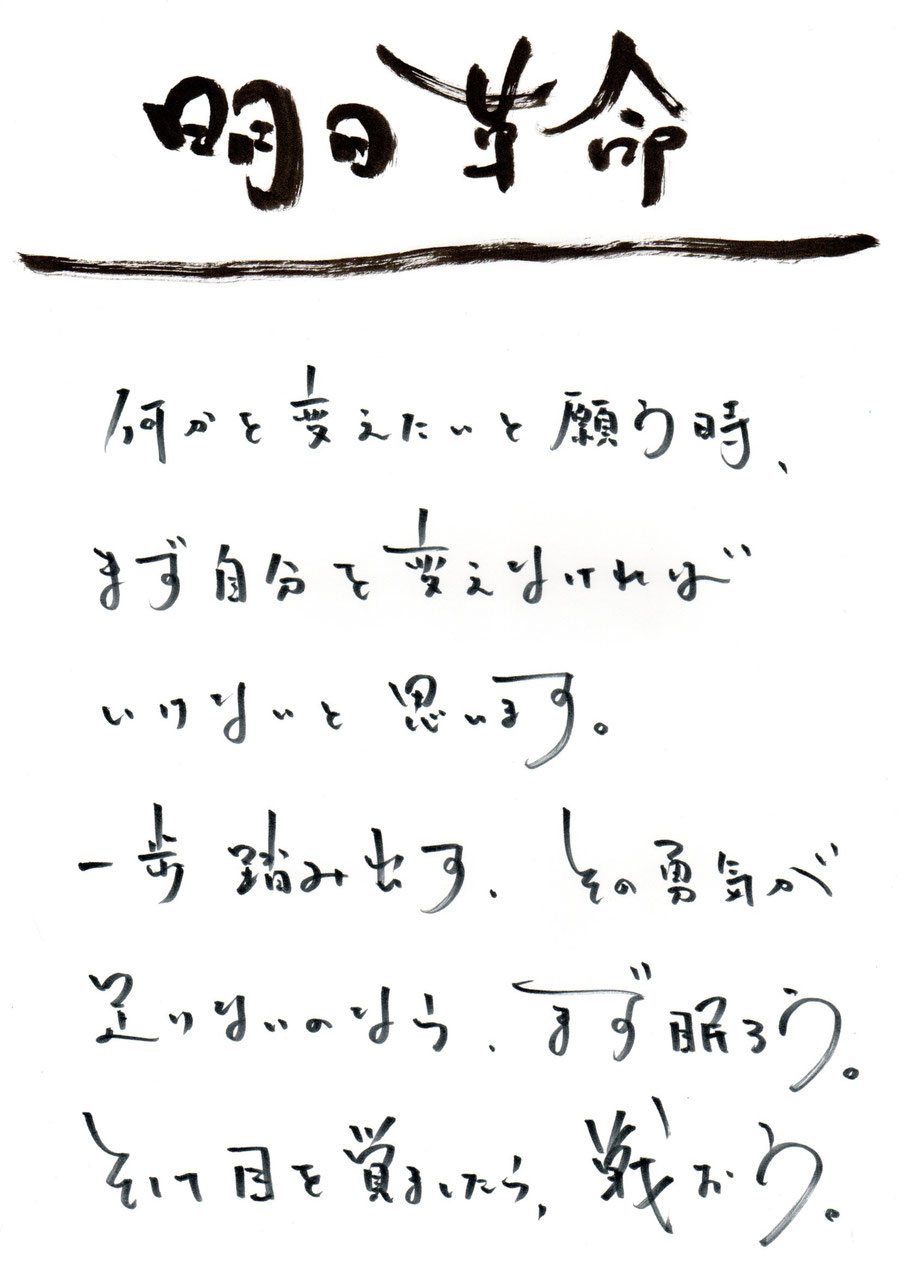 明日革命
何かを変えたいと願う時、
まず自分を変えなければ
いけないと思います。
一歩踏み出す、その勇気が
足りないのなら、まず眠ろう。
そして目を覚ましたら、戦おう。